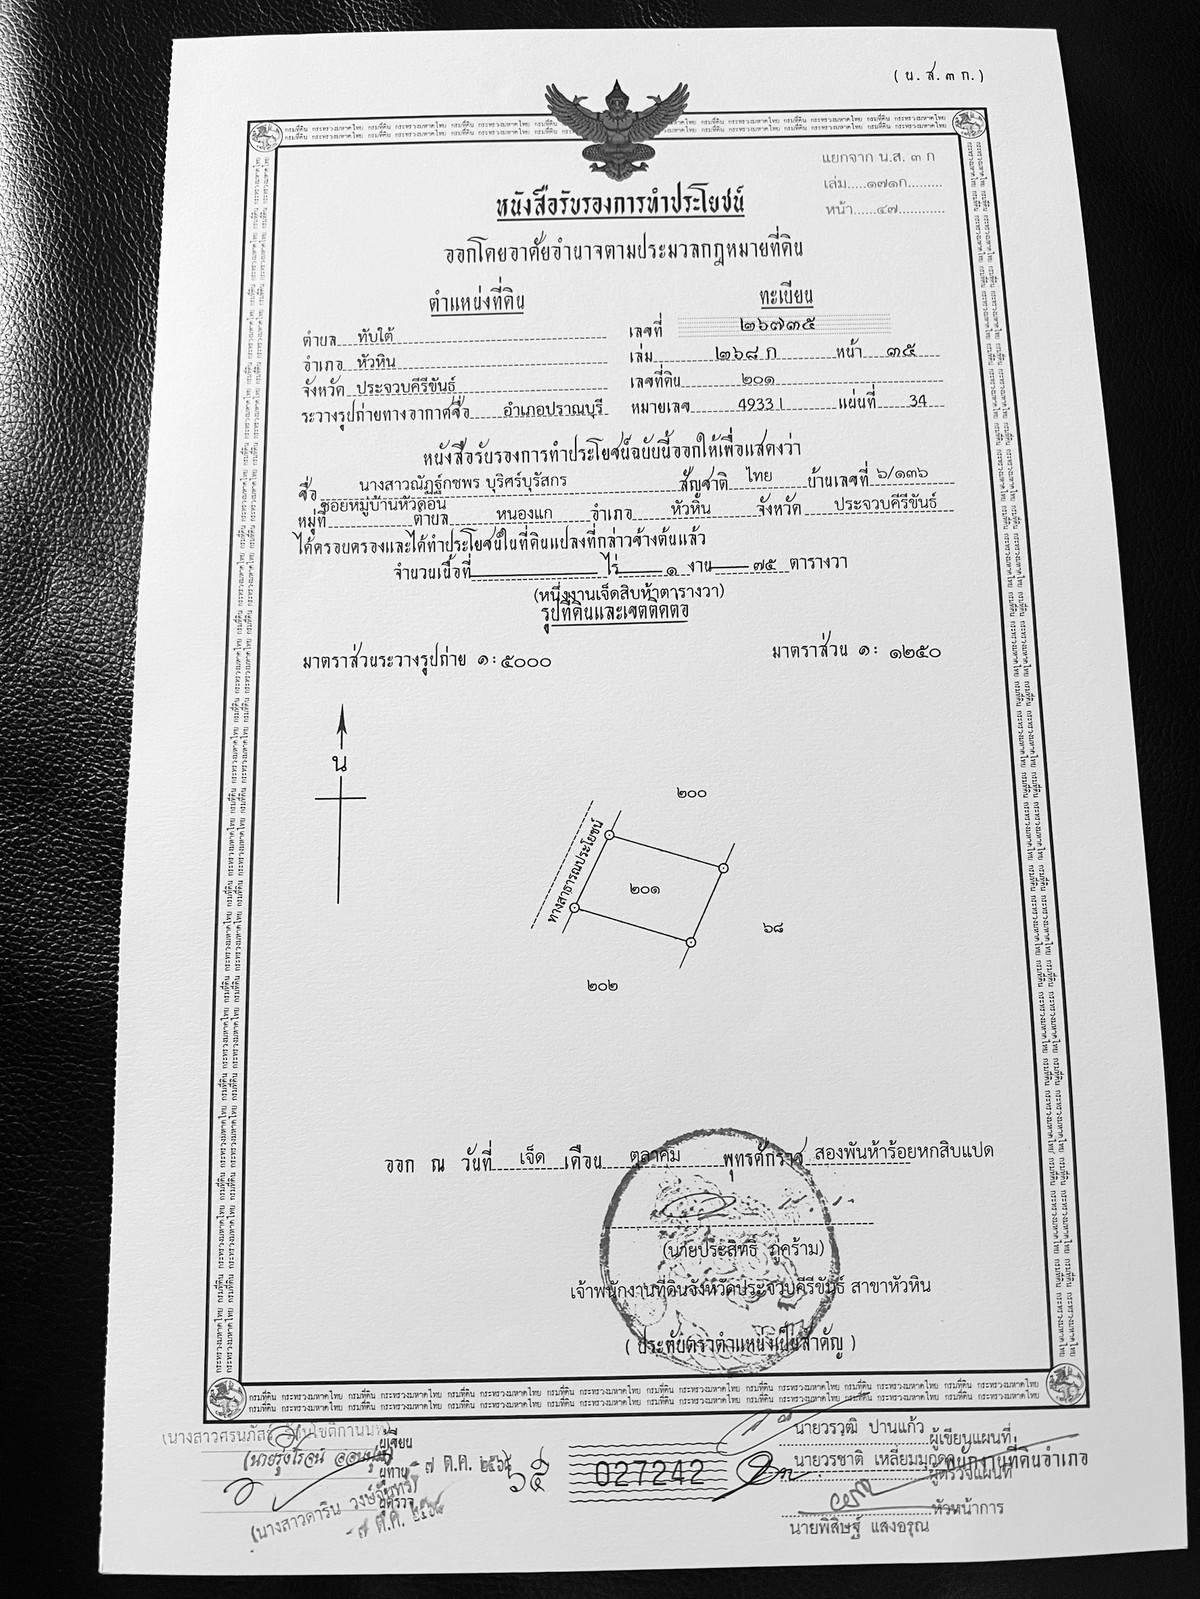 ( น. ส. ๓ ก. )
แยกจาก น.ส. ๓ ก
เล่ม.....๑๗๑ก.........
หน้า.....๔๗............
หนังสือรับรองการทำประโยชน์
ออกโดยอาศัยอำนาจตามประมวลกฎหมายที่ดิน
ตำแหน่งที่ดิน ทะเบียน
ตำบล ทับใต้ เลขที่ ๒๖๗๓๕
อำเภอ หัวหิน เล่ม ๒๖๘ ก หน้า ๓๕
จังหวัด ประจวบคีรีขันธ์ เลขที่ดิน ๒๐๑
ระวางรูปถ่ายทางอากาศชื่อ อำเภอปราณบุรี หมายเลข 4933 I แผ่นที่ 34
หนังสือรับรองการทำประโยชน์ฉบับนี้ออกให้เพื่อแสดงว่า
ชื่อ นางสาวณัฏฐ์กชพร บุริศร์บุรัสกร สัญชาติ ไทย บ้านเลขที่ ๖/๑๓๖
ซอยหมู่บ้านหัวดอน
หมู่ที่ ตำบล หนองแก อำเภอ หัวหิน จังหวัด ประจวบคีรีขันธ์
ได้ครอบครองและได้ทำประโยชน์ในที่ดินแปลงที่กล่าวข้างต้นแล้ว
จำนวนเนื้อที่ ไร่ ๑ งาน ๗๕ ตารางวา
(หนึ่งงานเจ็ดสิบห้าตารางวา)
รูปที่ดินและเขตติดต่อ
มาตราส่วนระวางรูปถ่าย ๑ : ๕๐๐๐ มาตราส่วน ๑ : ๑๒๕๐
น
๒๐๐
ทางสาธารณประโยชน์
๒๐๑
๖๘
๒๐๒
ออก ณ วันที่ เจ็ด เดือน ตุลาคม พุทธศักราช สองพันห้าร้อยหกสิบแปด
(นายประสิทธิ์ ภูคร้าม)
เจ้าพนักงานที่ดินจังหวัดประจวบคีรีขันธ์ สาขาหัวหิน
( ประทับตราตำแหน่งเป็นสำคัญ )
กรมที่ดิน กระทรวงมหาดไทย
ผู้เขียน
ผู้ทาน
ผู้ตรวจ
๗ ต.ค. ๒๕๖๘
(นางสาวดาริน วงษ์จันทร์)
๗ ต.ค. ๒๕๖๘
๖๕
027242
นายวรวุฒิ ปานแก้ว ผู้เขียนแผนที่
นายวรชาติ เหลี่ยมมุกดา พนักงานที่ดินอำเภอ
ผู้ตรวจแผนที่
หัวหน้าการ
นายพิสิษฐ์ แสงอรุณ